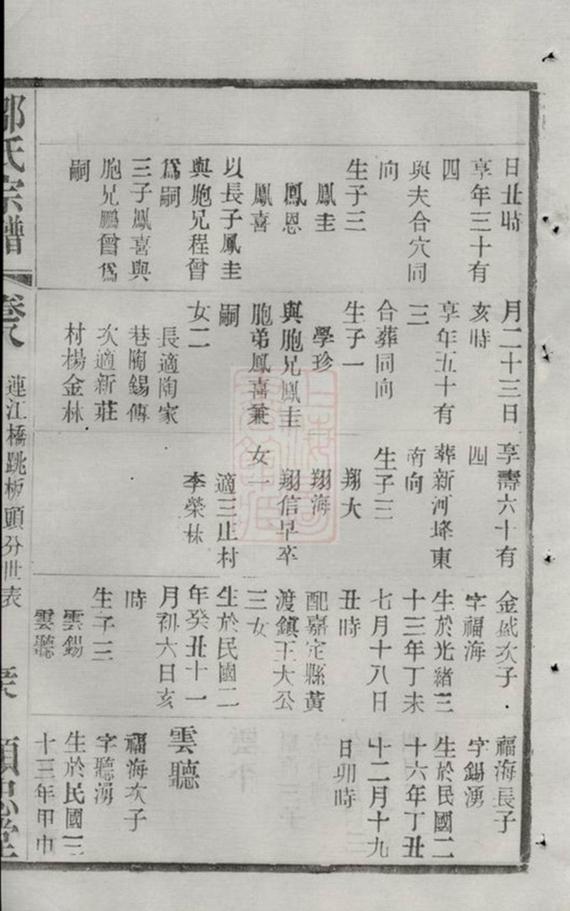 日丑時
享年三十有
四
與夫合穴同
向
生子三
鳳圭
鳳恩
鳳喜
以長子鳳圭
與胞兄程曾
爲嗣
三子鳳喜與
胞兄鵬曾爲
嗣
月二十三日
亥時
享年五十有
三
合葬同向
生子一
學珍
與胞兄鳳圭
胞弟鳳喜兼
嗣
女二
長適陶家
巷陶錫傳
次適新莊
村楊金林
享壽六十有
四
葬新河埄東
南向
生子三
翔大
翔海
翔信早卒
女一
適三庄村
李榮林
金盛次子
字福海
生於光緒三
十三年丁未
七月十八日
丑時
配嘉定縣黃
渡鎮王大公
三女
生於民國二
年癸丑十一
月初六日亥
時
生子二
雲錫
雲聽
福海長子
字錫湧
生於民國二
十六年丁丑
十二月十九
日卯時
雲聽
福海次子
字聽湧
生於民國三
十三年甲申
鄒氏宗譜
卷八
連江橋跳板頭分世表